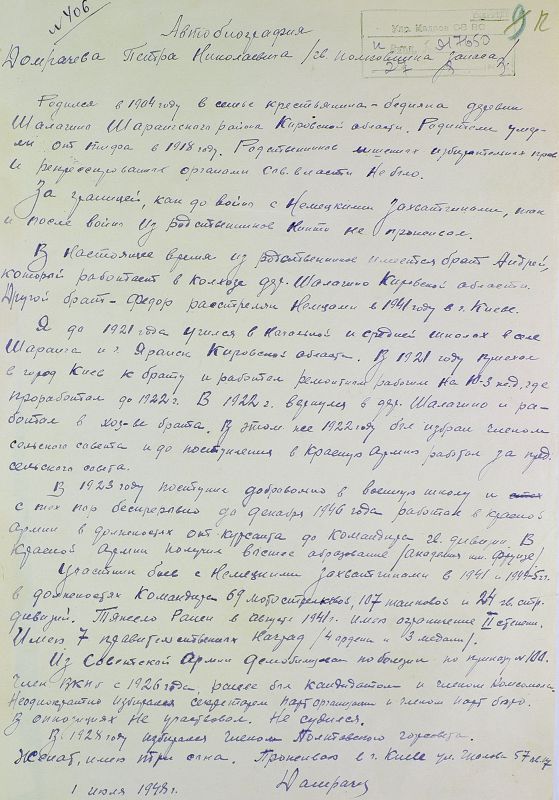 N 406
Автобиография
Домрачева Петра Николаевича /гв. полковника запаса/
Родился в 1904 году в семье крестьянина-бедняка деревни
Шалагино Шарангского района Кировской области. Родители умер-
ли от тифа в 1918 году. Родственников лишенных избирательных прав
и репрессированных органами Сов. власти не было.
За границей, как до войны с Немецкими захватчиками, так
и после войны из родственников никто не проживал.
В настоящее время из родственников имеется брат Андрей,
который работает в колхозе дер. Шалагино Кировской области.
Другой брат- Федор расстрелян Немцами в 1941 году в г. Киеве.
Я до 1921 года учился в начальной и средней школах в селе
Шаранга и г. Яранск Кировской области. В 1921 году приехал
в город Киев к брату и работал ремонтным рабочим на Ю-З ж.д, где
проработал до 1922 г. В 1922 г. вернулся в дер. Шалагино и ра-
ботал в хоз-ве брата. В этом же 1922 году был избран членом
сельского совета и до поступления в Красную Армию работал за пред.
сельского совета.
В 1923 году поступил добровольно в военную школу и
с тех пор беспрерывно до декабря 1946 года работал в Красной
Армии в должностях от курсанта до командира гв. дивизии. В
Красной Армии получил высшее образование /академия им. Фрунзе/
Участник боев с Немецкими захватчиками в 1941 и
в должностях командира 69 мотострелковой, 107 танковой и 24 гв. стр.
дивизий. Тяжело ранен в августе 1941 г. имею ограничение II степени.
Имею 7 правительственных наград /4 ордена и 3 медали/.
Из Советской Армии демобилизован по болезни по приказу № 100.
Член ВКПб с 1926 года, ранее был кандидатом и членом комсомола.
Неоднократно избирался секретарем парторганизации и членом парт бюро.
В оппозициях не участвовал. Не судился.
В 1928 году избирался членом Полтавского горсовета.
Женат, имею три сына. Проживаю в г. Киеве ул. Чкалова 57 кв. 17
1 июля 1948 г. Домрачев